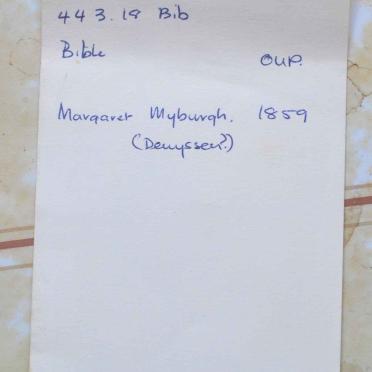 443.18 Bib
Bible
OUP.
Margaret Myburgh. 1859
(Denyssen?)